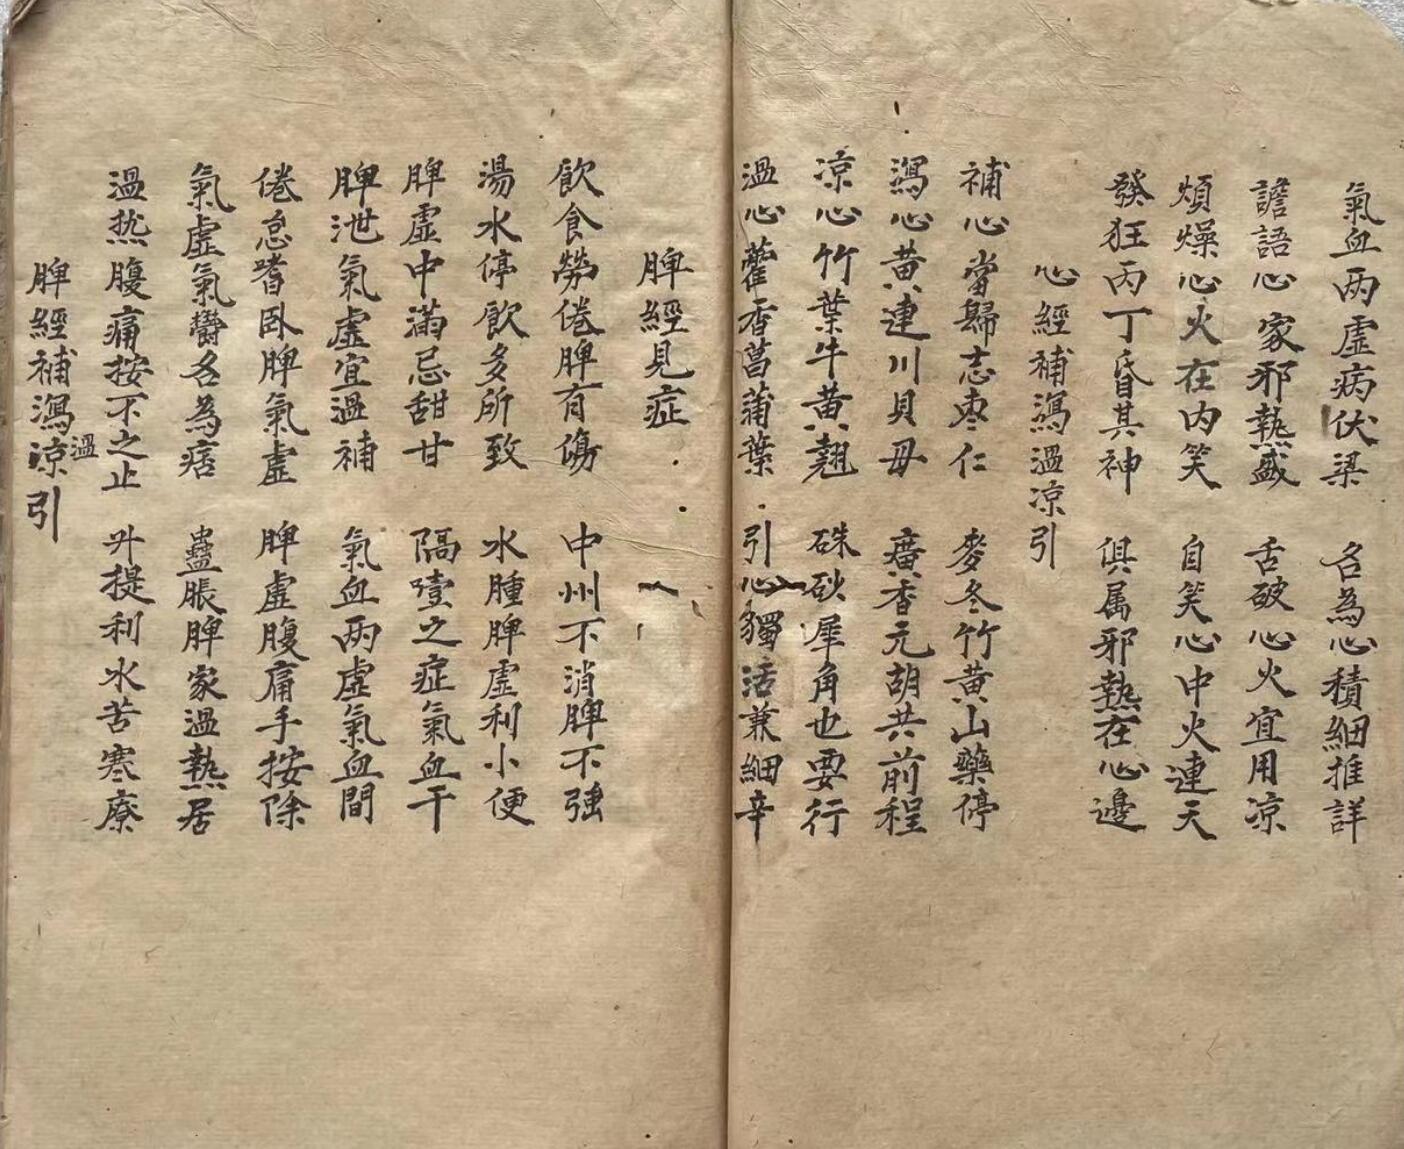 氣血两虚病伏梁 各為心積細推詳
譫語心家邪熱盛 舌破心火宜用凉
煩燥心火在内笑 自笑心中火連天
發狂丙丁昏其神 俱属邪熱在心邊
心經補瀉温凉引
補心當歸志枣仁 麥冬竹黄山藥停
瀉心黄連川貝母 廣香元胡共前程
凉心竹葉牛黄翹 硃砂犀角也要行
温心藿香菖蒲葉 引心獨活兼細辛
脾經見症
飲食勞倦脾有傷 中州不消脾不強
湯水停飲多所致 水腫脾虚利小便
脾虚中滿忌甜甘 隔噎之症氣血干
脾泄氣虚宜温補 氣血两虚氣血間
倦怠嗜卧脾氣虚 脾虚腹痛手按除
氣虚氣欝各為痞 蠱脹脾家温熱居
温热腹痛按不之止 升提利水苦寒療
脾經補瀉温凉引